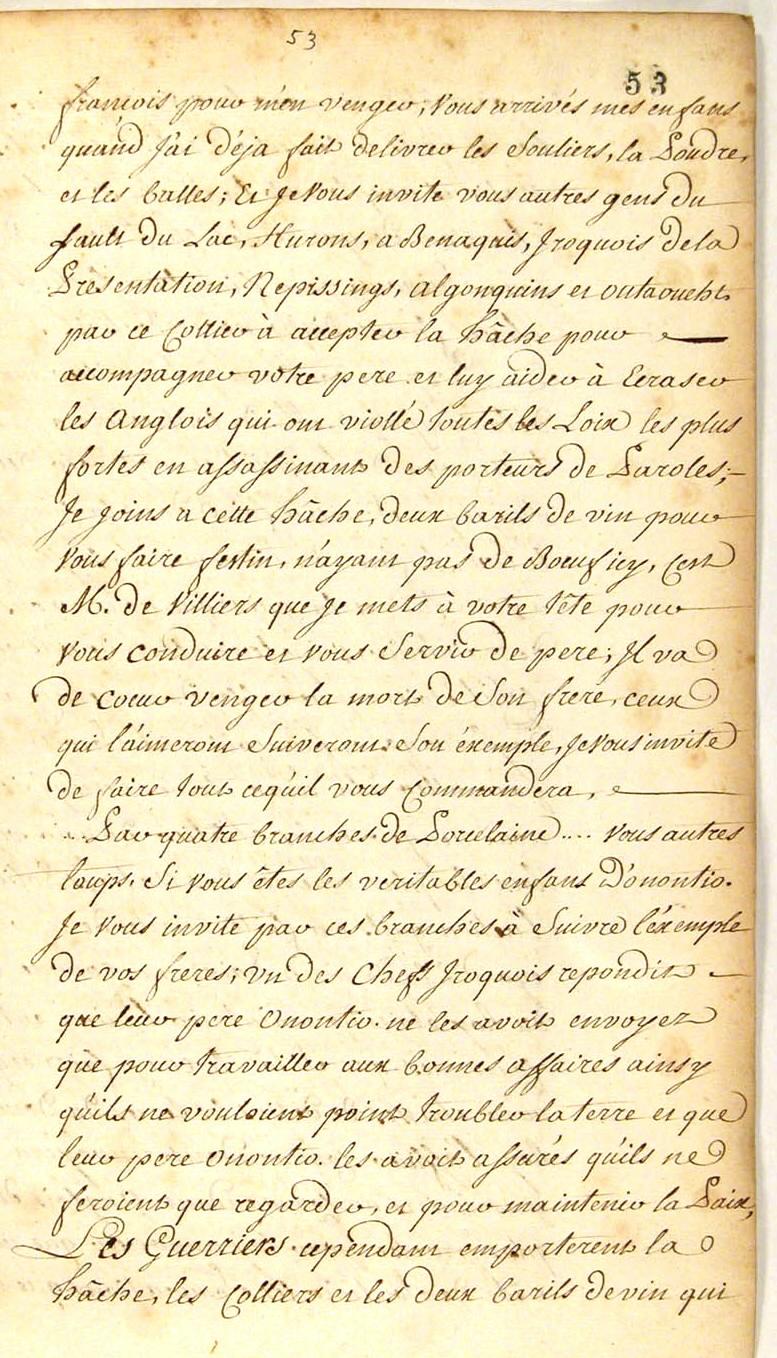 53
53
francois pour m'en venger, Vous arrivés mes enfans
quand J'ai déja fait delivrer les Souliers, la Poudre,
et les balles; Et Je Vous invite vous autres gens du
Sault du Lac, Hurons, aBenaquis, Iroquois dela
Presentation, Nepissings, algonquins et outaouchs
par ce Collier à accepter la hâche pour
accompagner votre pere et luy aider à Ecraser
les Anglois qui ont viollé toutes les Loix les plus
fortes en assassinant des porteurs de Paroles;
Je Joins a cette hâche, deux barils de vin pour
Vous faire festin, n'ayant pas de Boeuf icy, C'est
M. de Villiers que Je mets à votre tête pour
vous conduire et vous Servir de pere; Il va
de coeur venger la mort de Son frere, ceux
qui l'aimeront Suiveront Son éxemple, Je Vous invite
de faire tout cequ'il vous Commandera,
Par quatre branches de Porcelaine .... Vous autres
loups, Si vous êtes les veritables enfans D'onontio.
Je Vous invite par ces branches à Suivre l'éxemple
de vos freres; un des Chefs Iroquois repondit
que leur pere Onontio ne les avoit envoyez
que pour travailler aux bonnes affaires ainsy
qu'ils ne vouloient point troubler la terre et que
leur pere Onontio les avoit assurés qu'ils ne
feroient que regarder, et pour maintenir la Paix,
Les Guerriers cependant emporterent la
hâche, les Colliers et les deux barils de vin qui